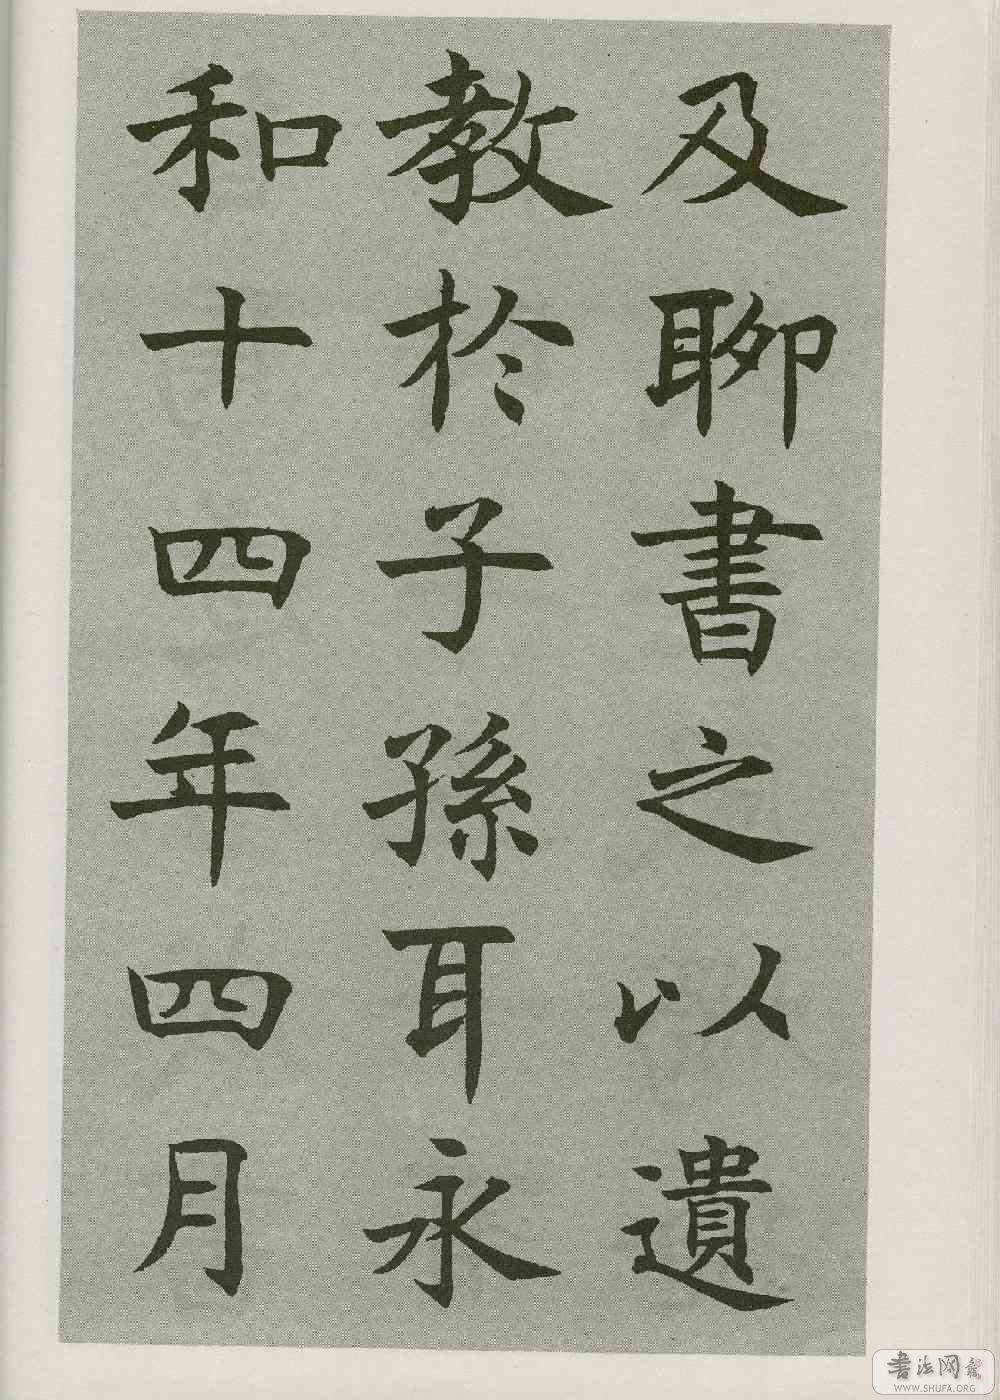 及聊書之以遺
教於子孫耳永
和十四年四月
書法网
WWW.SHUFA.ORG